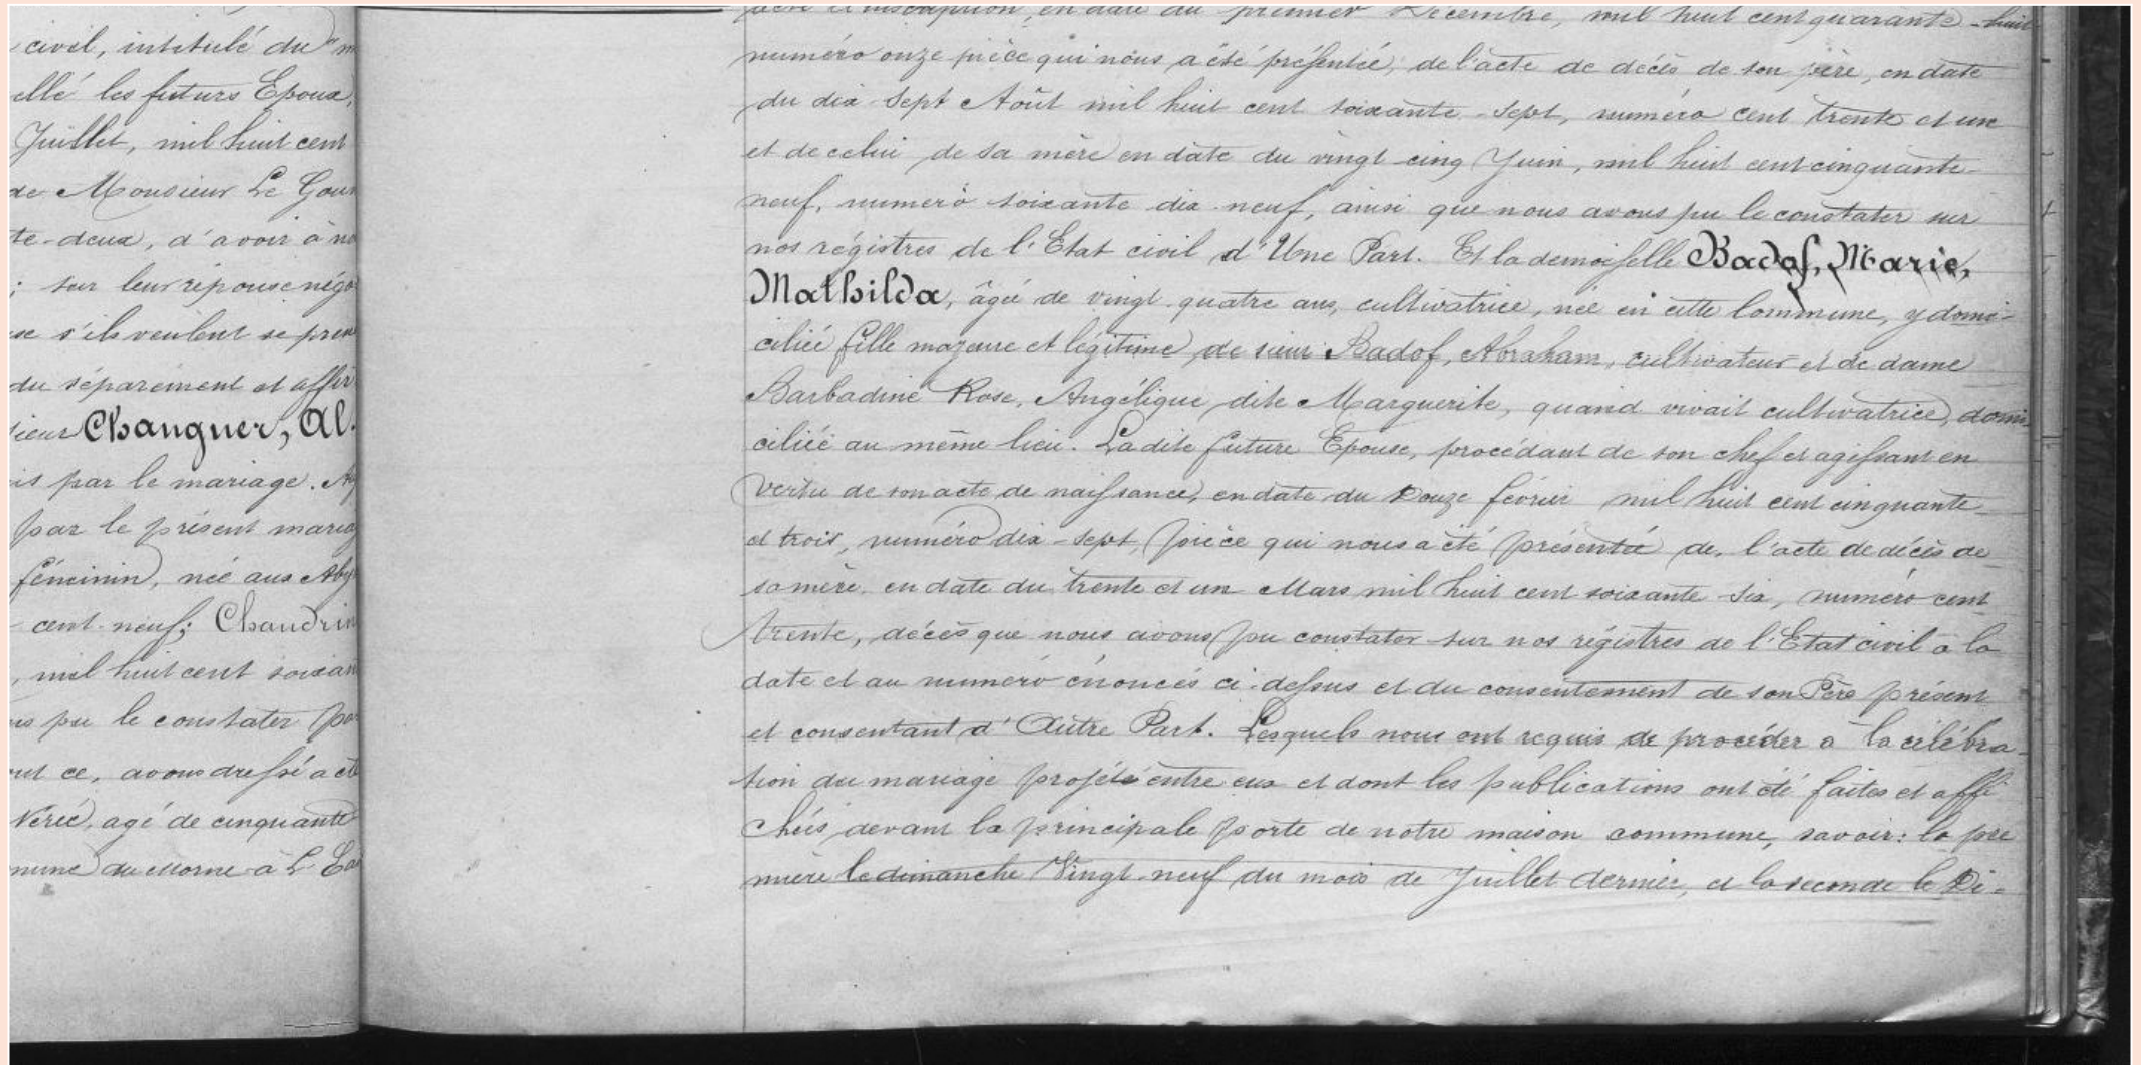 civil, intitulé du m
ellé les futurs Epoux,
Juillet, mil huit cent
de Monsieur Le Gou
te-deux, d'avoir à no
; sur leur réponse néga
se s'ils veulent se pren
du séparément et affir
sieur Changuer, Al.
is par le mariage.
par le présent maria
féminin, née aux Aby
cent-neuf; Chaudrin
, mil huit cent soixan
us pu le constater pa
nt ce, avons dressé acte
agé de cinquante
mune du Morne-à-L'Ea
acte d'inscription, en date du premier Décembre, mil huit cent quarante-huit
numéro onze pièce qui nous a été présentée; de l'acte de décès de son père, en date
du dix-sept Août mil huit cent soixante-sept, numéro cent trente et un
et de celui de sa mère en date du vingt-cinq Juin, mil huit cent cinquante-
neuf, numéro soixante dix-neuf, ainsi que nous avons pu le constater sur
nos régistres de l'Etat civil d'Une Part. Et la demoiselle Badof, Marie,
Mathilda, âgée de vingt-quatre ans, cultivatrice, née en cette Commune, y domi-
ciliée fille majeure et légitime de sieur Badof, Abraham, cultivateur et de dame
Barbadine Rose, Angélique dite Marguerite, quand vivait cultivatrice, domi-
ciliée au même lieu. La dite future Epouse, procédant de son chef et agissant en
vertu de son acte de naissance, en date du Douze février mil huit cent cinquante-
et trois, numéro dix-sept, pièce qui nous a été présentée de, l'acte de décès de
sa mère, en date du trente et un Mars mil huit cent soixante-six, numéro cent
trente, décès que nous avons pu constater sur nos régistres de l'Etat civil à la
date et au numéro énoncés ci-dessus et du consentement de son Père présent
et consentant d'Autre Part. Lesquels nous ont requis de procéder à la célébra-
tion du mariage projété entre eux et dont les publications ont été faites et affi
chées devant la principale porte de notre maison commune, savoir: la pre
mière le dimanche Vingt-neuf du mois de Juillet dernier, et la seconde le Di-